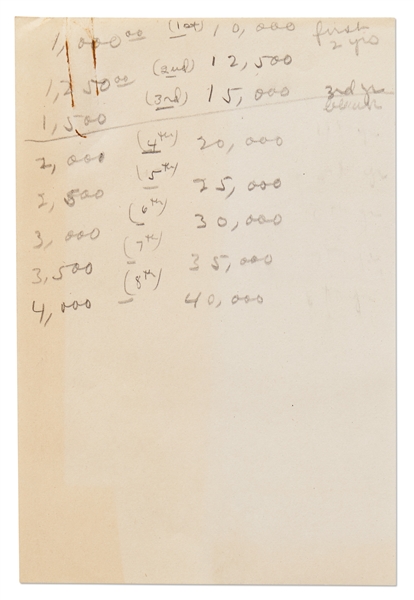 1,000 00 (1st) 10,000 first 2 yrs
1,250 00 (2nd) 12,500
1,500 (3rd) 15,000 3rd yr
2,000 (4th) 20,000
2,500 (5th) 25,000
3,000 (6th) 30,000
3,500 (7th) 35,000
4,000 (8th) 40,000